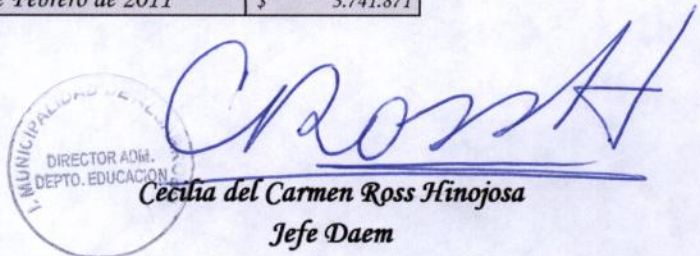 de Febrero de 2011 $ 3.741.871
CRossH
I. MUNICIPALIDAD DE
DIRECTOR ADM.
DEPTO. EDUCACION
Cecilia del Carmen Ross Hinojosa
Jefe Daem